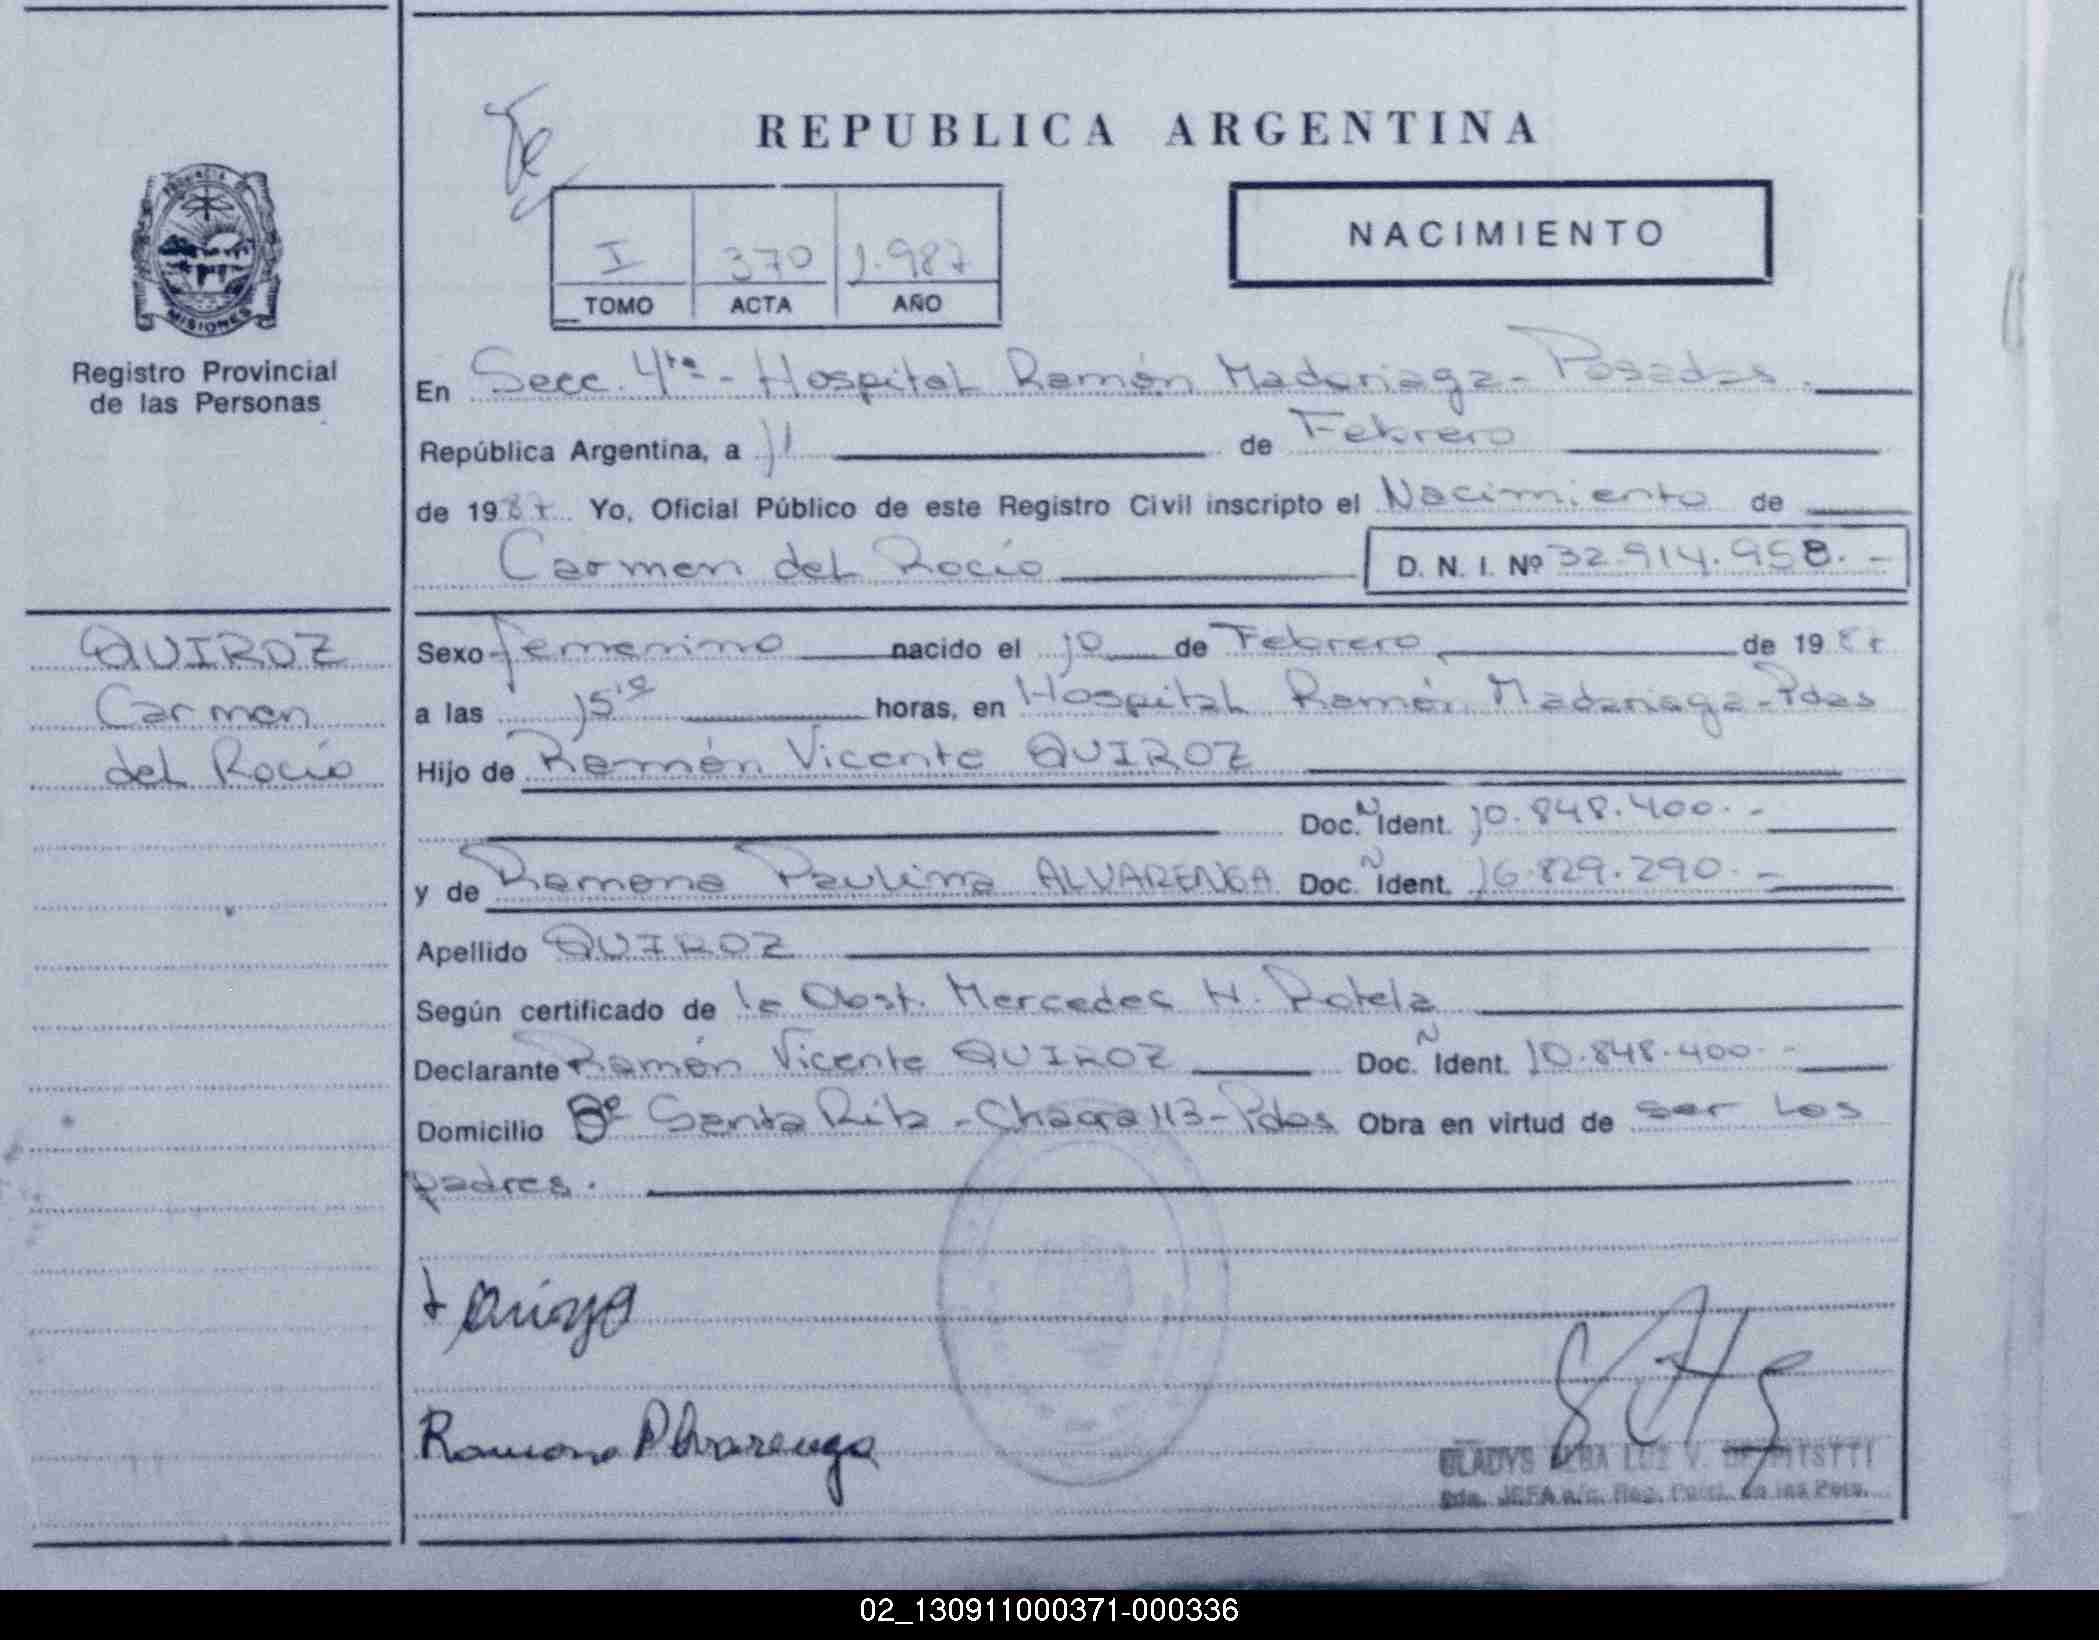 REPUBLICA ARGENTINA
NACIMIENTO
I 370 1.987
TOMO ACTA AÑO
PROVINCIA DE
MISIONES
Registro Provincial
de las Personas
En Secc. 4ta - Hospital Ramón Madariaga - Posadas.
República Argentina, a 11 de Febrero
de 1987 Yo, Oficial Público de este Registro Civil inscripto el Nacimiento de
Carmen del Rocío D. N. I. Nº 32.914.958.-
QUIROZ
Carmen
del Rocío
Sexo femenino nacido el 10 de Febrero de 1987
a las 15 horas, en Hospital Ramón Madariaga - Pdas
Hijo de Ramón Vicente QUIROZ
Doc. Ñ Ident. 10.848.400.-
y de Ramona Paulina ALVARENGA Doc. Ñ Ident. 16.829.290.-
Apellido QUIROZ
Según certificado de la Obst. Mercedes N. Rotela
Declarante Ramón Vicente QUIROZ Doc. Ñ Ident. 10.848.400.-
Domicilio Bº Santa Rita - Chacra 113 - Pdas Obra en virtud de ser los
padres.
Ramona Alvarenga
GLADYS ALBA LUZ V.
JEFA a/c. Reg. Pcial. de las Pers.
02_130911000371-000336